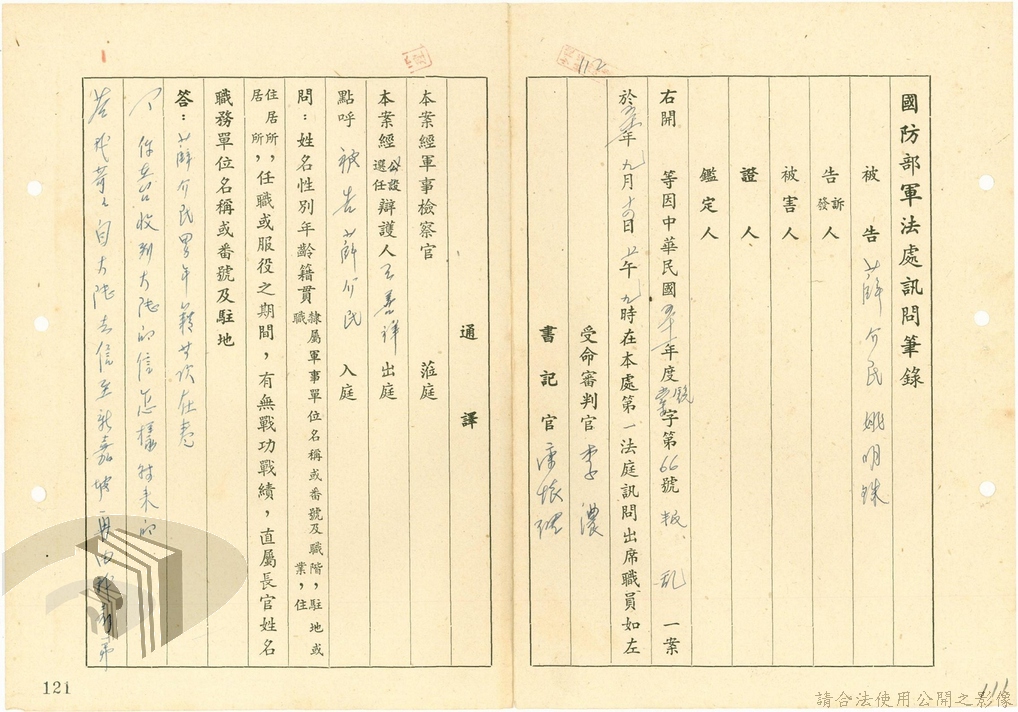 112
國防部軍法處訊問筆錄
被告 薛介民 姚明珠
告訴發人
被害人
證人
鑑定人
右開 等因中華民國五十一年度 字第66號 叛亂 一案
於五十一年九月十四日上午九時在本處第一法庭訊問出席職員如左
受命審判官 李濃
書記官
通譯
本案經軍事檢察官 蒞庭
本案經公設選任辯護人 王善祥 出庭
點呼 被告薛介民 入庭
問：姓名性別年齡籍貫隸屬軍事單位名稱或番號及職階，駐地或職業，住
住居所，任職或服役之期間，有無戰功戰績，直屬長官姓名
居所，
職務單位名稱或番號及駐地
答：薛介民男年籍等項在卷
問 你在台收到大陸的信怎樣轉來的
答 我哥哥自大陸去信至新嘉坡再由
121
111
請合法使用公開之影像